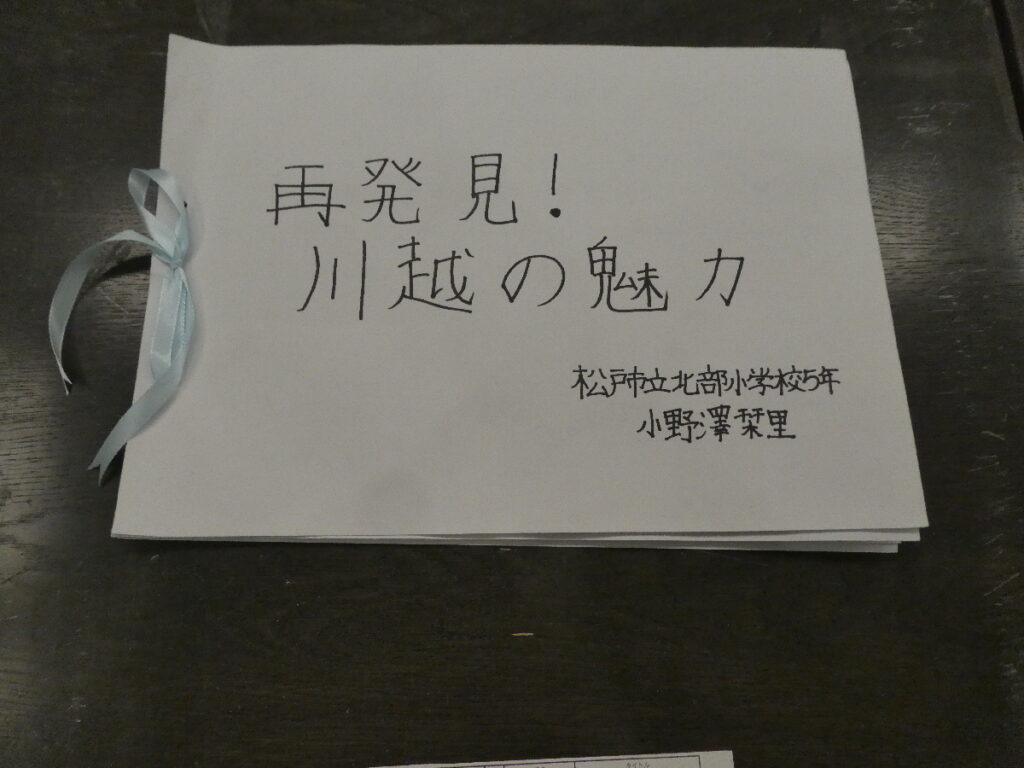 再発見！
川越の魅力
松戸市立北部小学校5年
小野澤栞里
タイトル